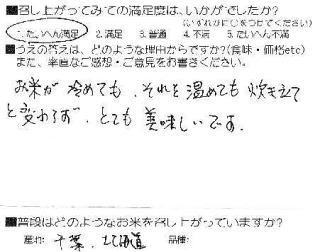 ■召し上がってみての満足度は、いかがでしたか？
(いずれかに○をつけてください)
1.たいへん満足 2.満足 3.普通 4.不満 5.たいへん不満
■うえの答えは、どのような理由からですか?(食味・価格etc)
また、率直なご感想・ご意見をお書きください。
お米が冷めても、それを温めても炊き立て
と変わらず、とても美味しいです。
■普段はどのようなお米を召し上がっていますか?
産地: 千葉、北海道 品種: